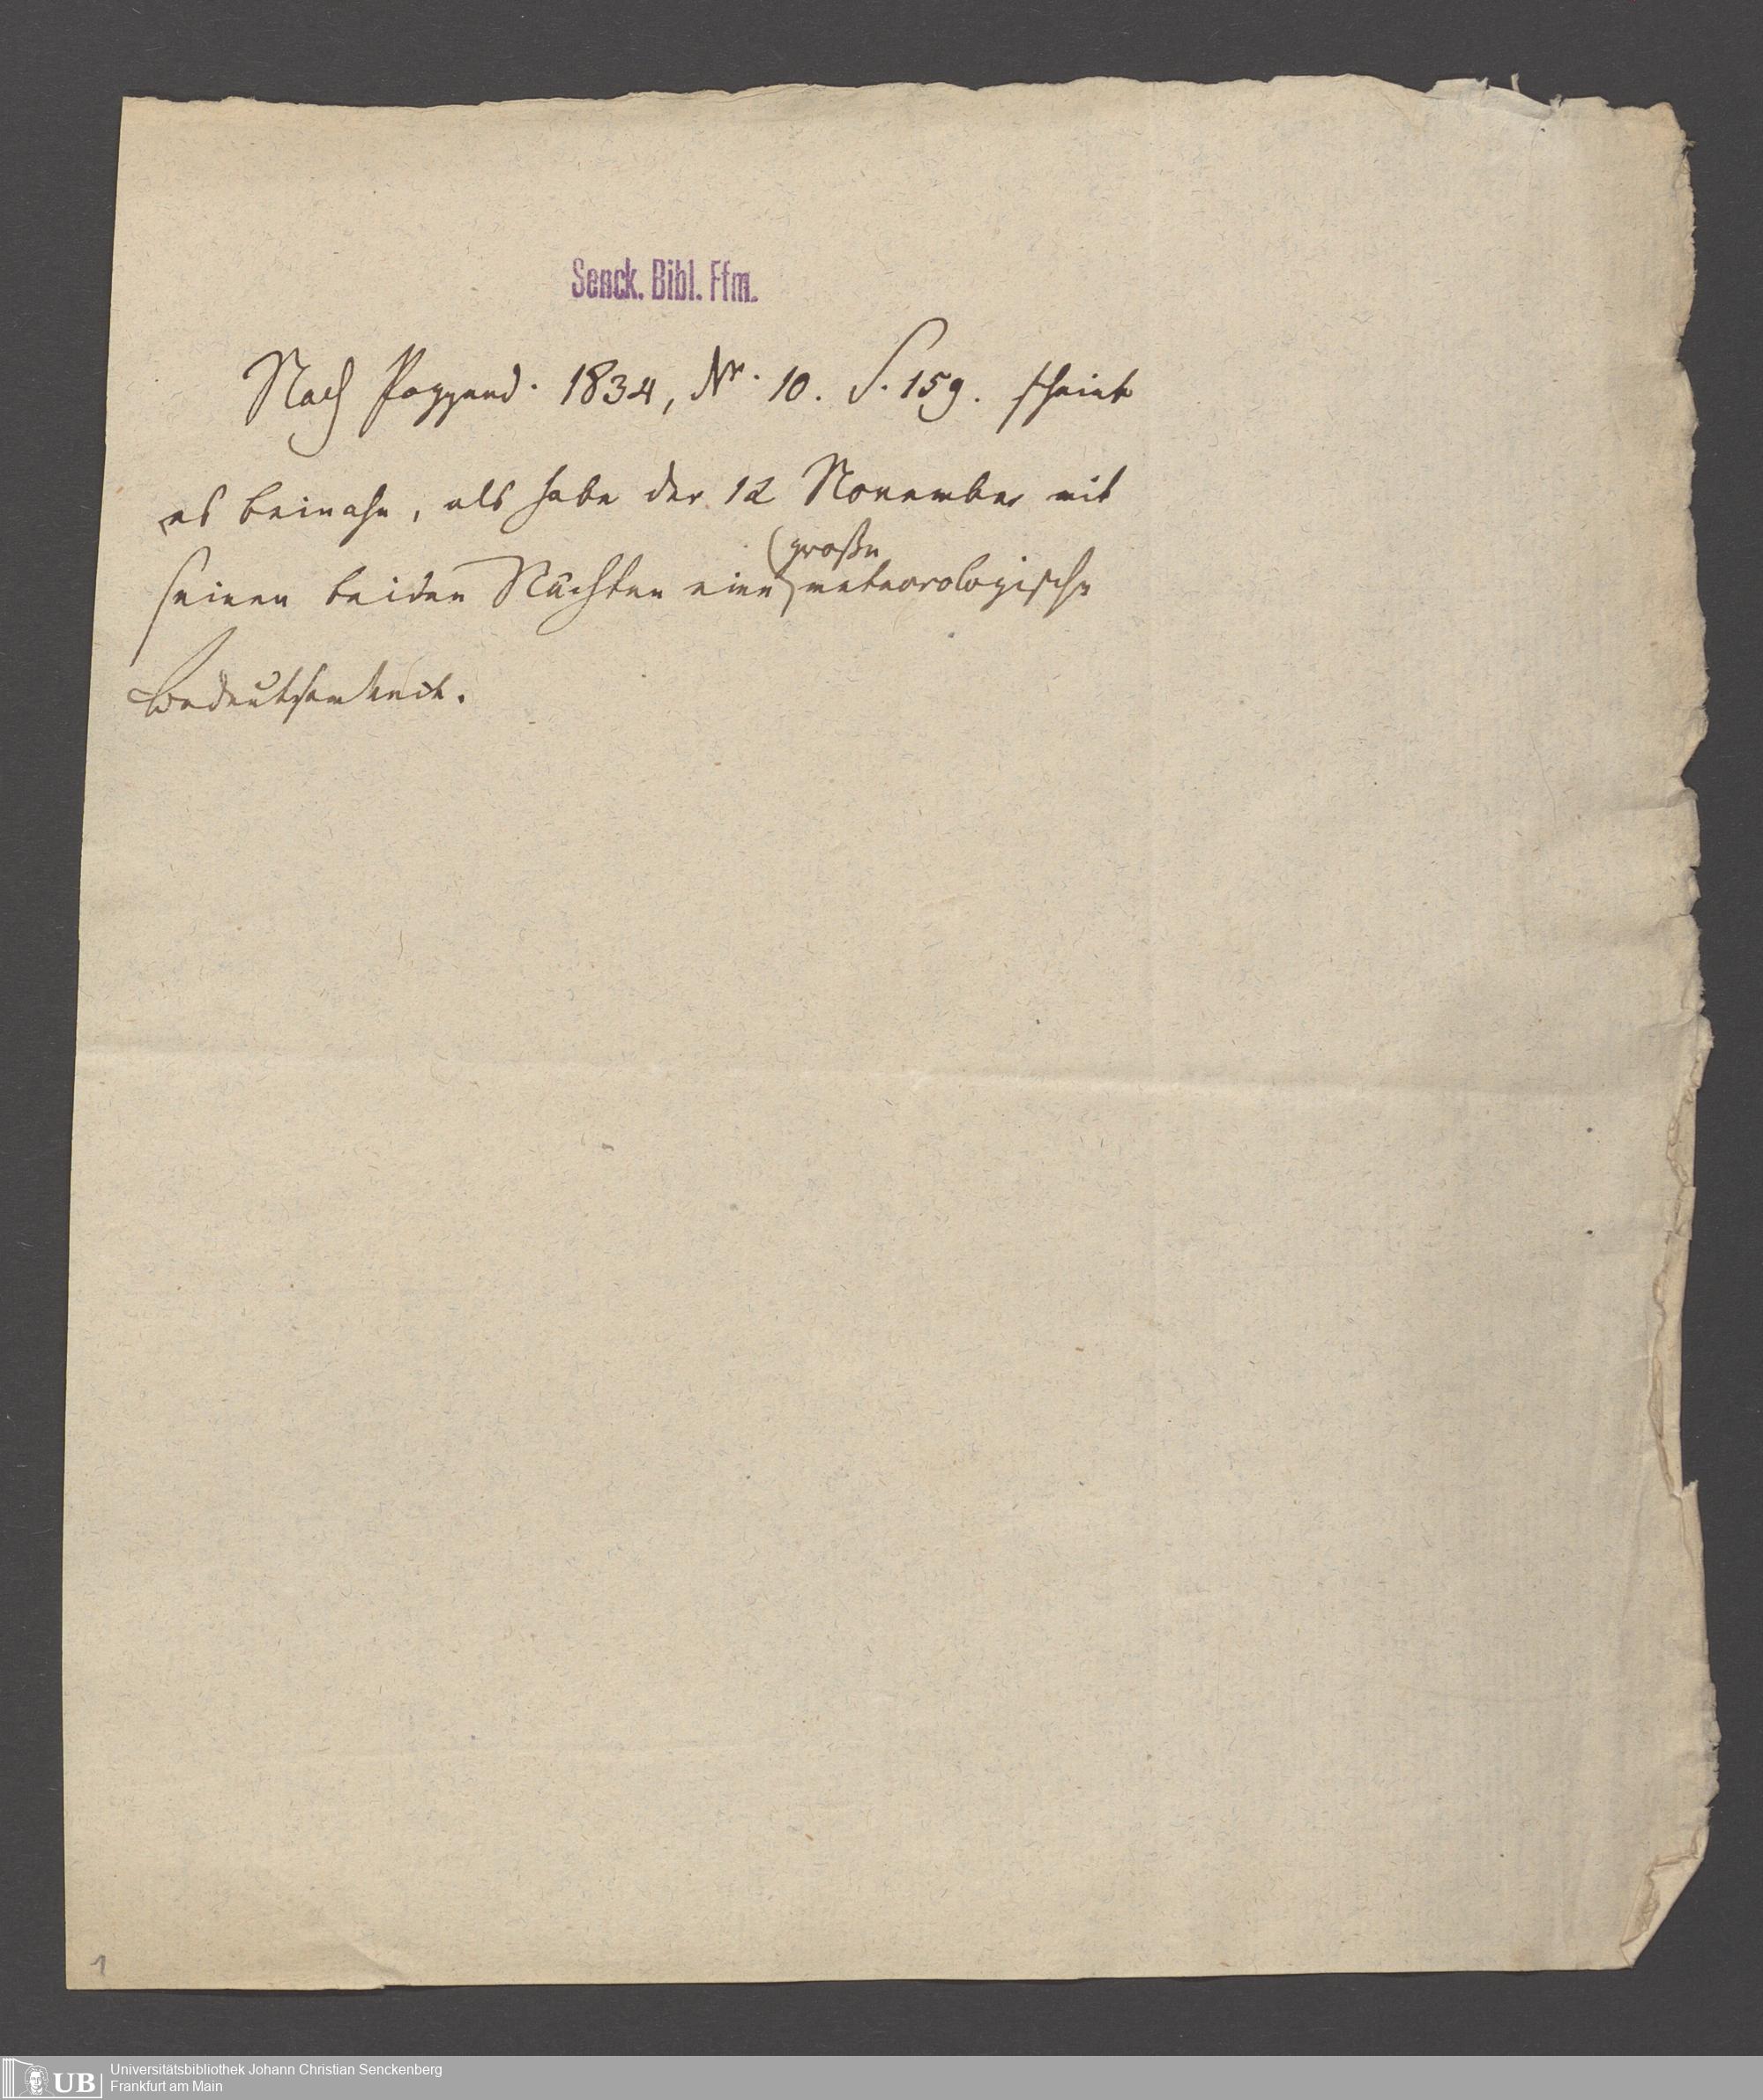 Senck. Bibl. Ffm.
Nach Poggend. 1834, Nr. 10. S. 159. scheint
es beinahe, als habe der 12 November mit
große
seinen beiden Nächten eine meteorologische
Bedeutsamkeit.
1
UB
Universitätsbibliothek Johann Christian Senckenberg
Frankfurt am Main